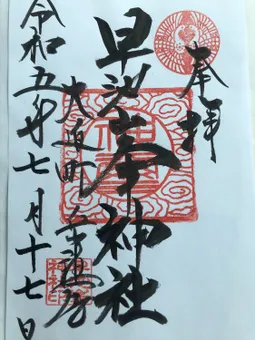 奉拝
早池峯神社
大迫町
令和五年七月十七日